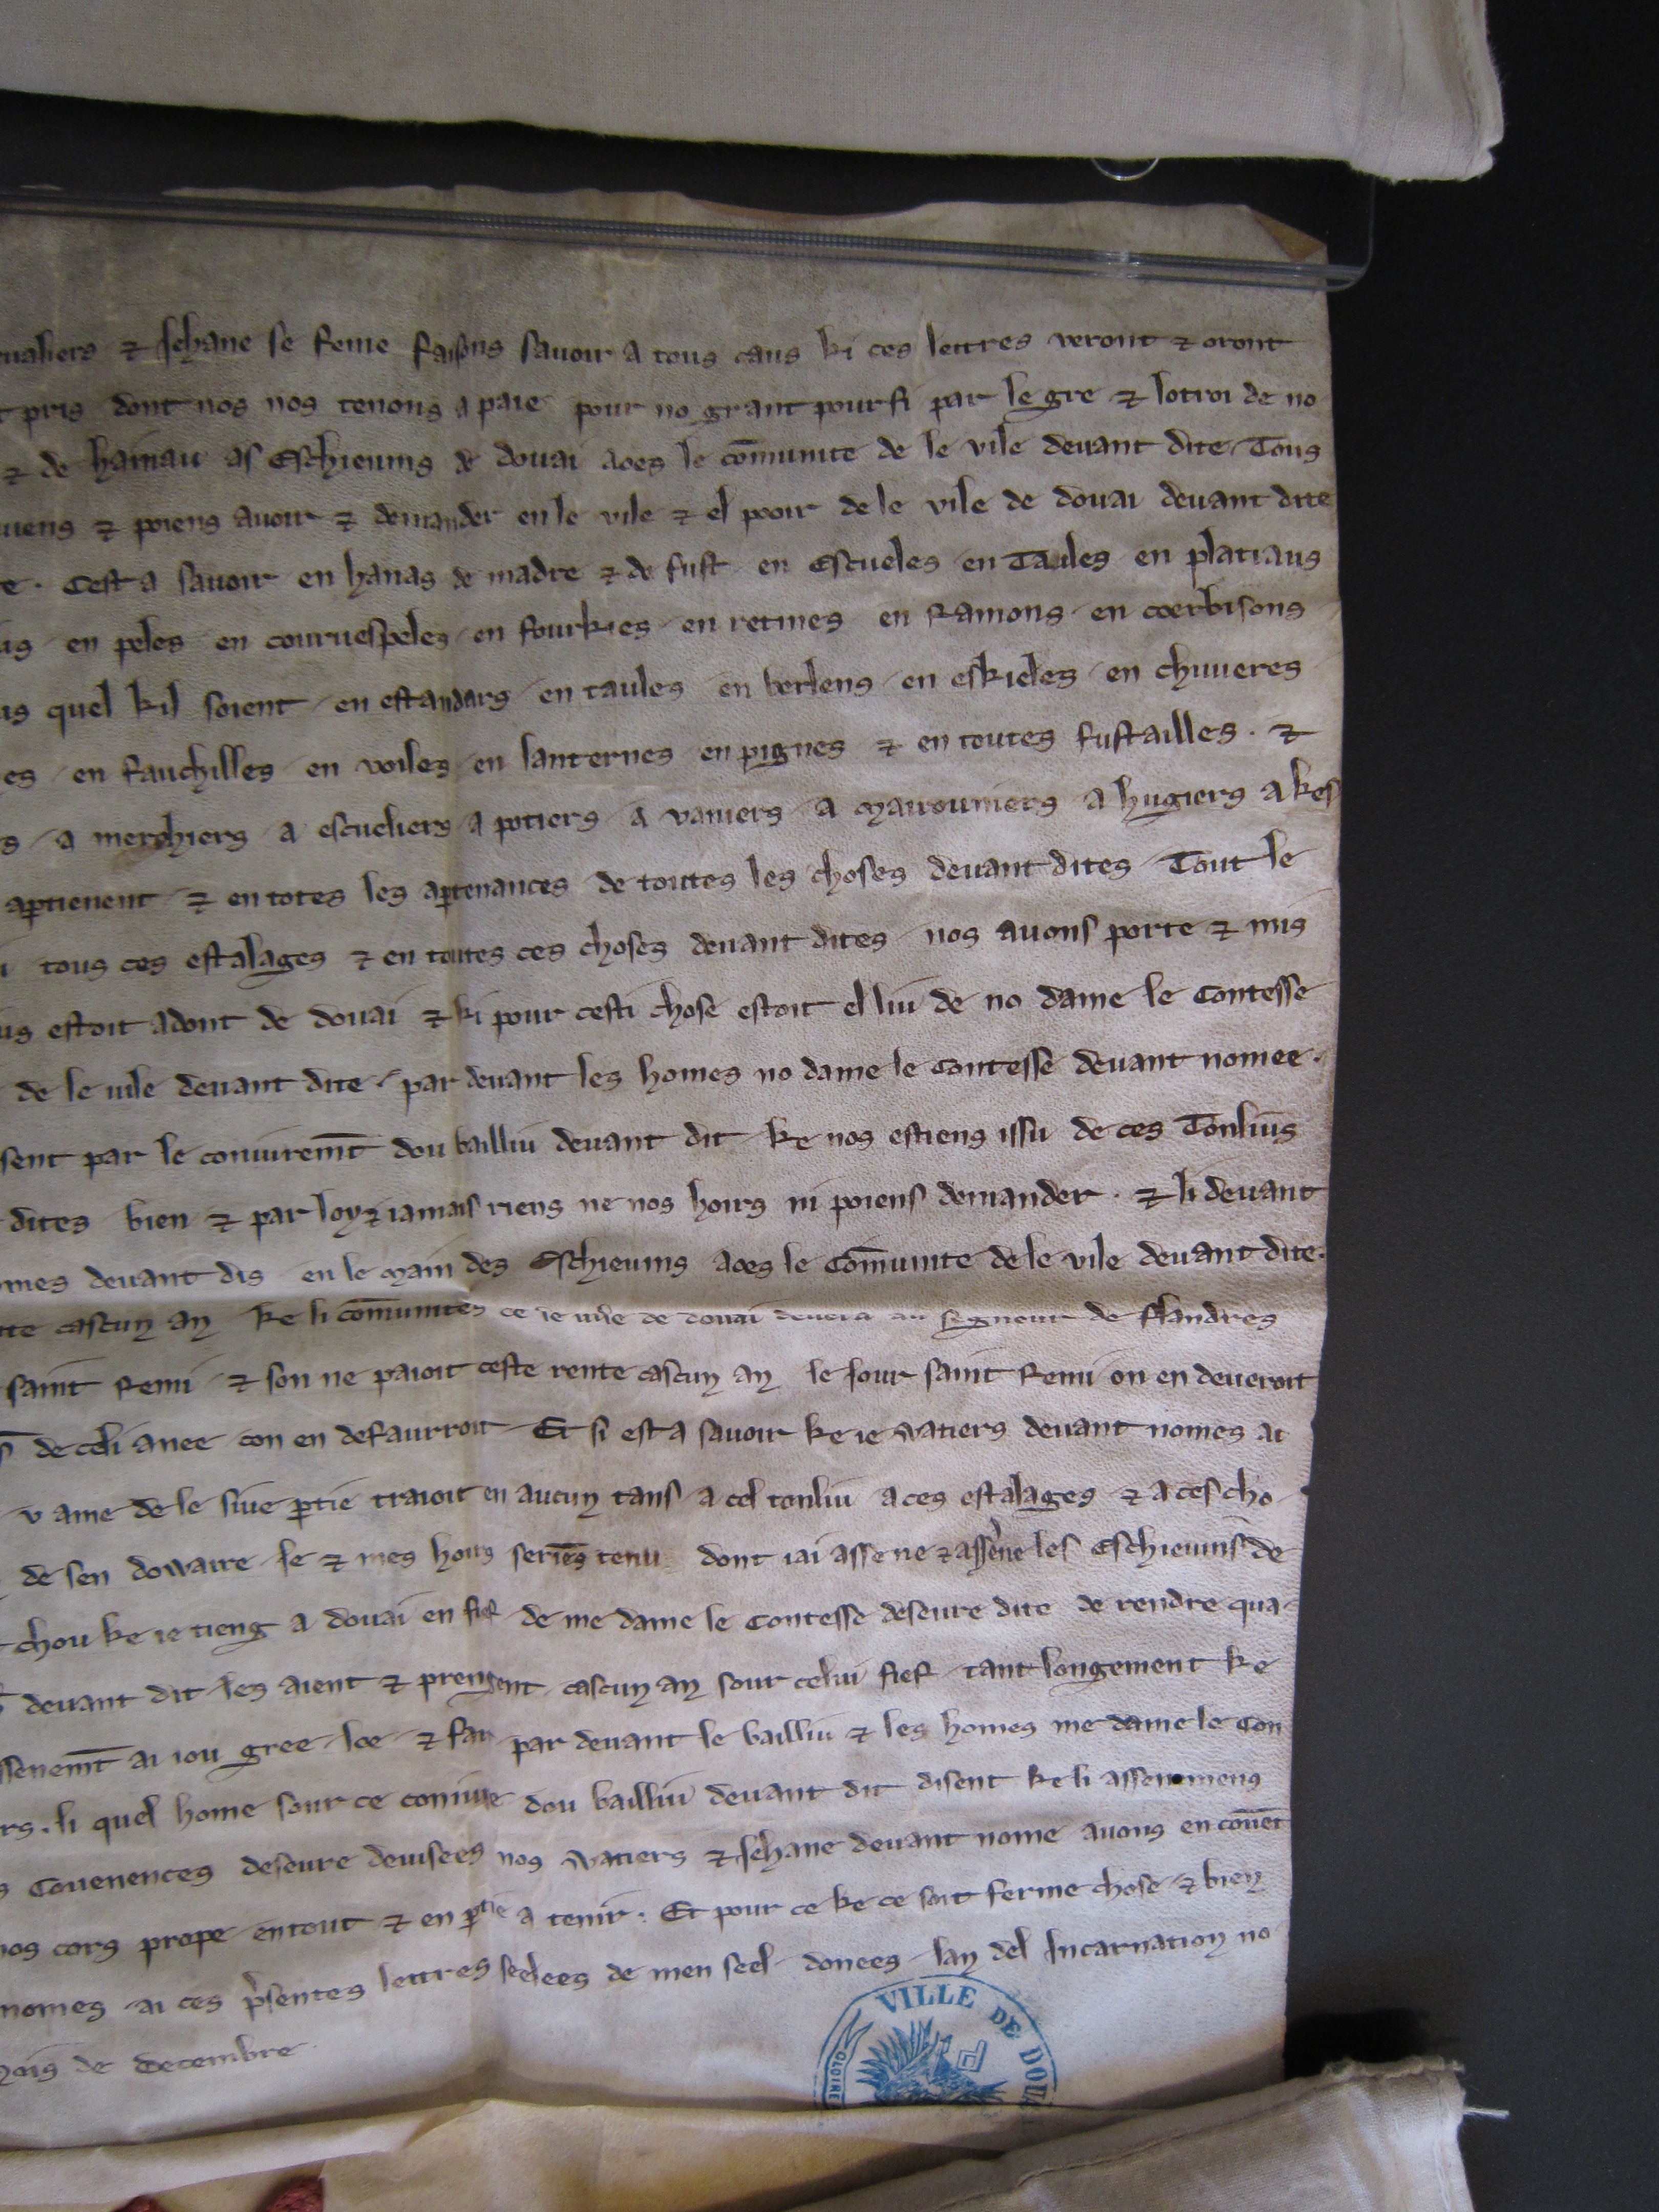 ⁊ Jehane se feme faisons savoir a tous caus ki ces lettres veront ⁊ oront
pris dont nos nos tenons a paie pour no grant pourfi par le gre ⁊ lotroi de no
⁊ de hainau as Eschieuins de douai aoes le cōmunite de le vile deuant dite Tous
⁊ poiens auoir ⁊ demander en le vile ⁊ el pooir de le vile de douai deuant dite
Cest a sauoir en hanas de madre ⁊ de fust en Escueles en Taules en platiaus
en peles en couruespeles en fourkies en retines en Ramons en coerbisons
quel kil soient en estandars en taules en berlens en eskieles en chiuieres
en fauchilles en voiles en lanternes en pignes ⁊ en toutes fustailles . ⁊
a merchiers a escueliers a potiers a vaniers a mairouniers a hugiers a kes
aptienent ⁊ en totes les aptenances de toutes les choses deuant dites Tout le
tous ces estalages ⁊ en toutes ces choses deuant dites nos auons porte ⁊ mis
estoit adont de douai ⁊ ki pour cesti chose estoit el liu de no dame le Contesse
de le uile deuant dite par deuant les homes no dame le Contesse deuant nomee .
par le coniuremt dou bailliu deuant dit ke nos estiens issu de ces Tonlius
dites bien ⁊ par loy ⁊ iamais riens ne nos hoirs ni poiens demander . ⁊ li deuant
deuant dis en le main des Eschieuins aoes le Cōmunite de le vile deuant dite .
cascun an ke li cōmunites de le uile de douai deuera au segneur de flandres
saint Remi ⁊ son ne paioit ceste rente cascun an le Jour saint Remi on en deueroit
de celi anee con en defaurroit Et si est a sauoir ke ie Watiers deuant nomes ai
v ame de le siue ptie traioit en aucun tans a cel tonliu a ces estalages ⁊ a ces cho
de sen dowaire Je ⁊ mes hoirs seriēs tenu dont iai assene ⁊ assene les Eschieuins de
chou ke ie tieng a douai en fief de me dame le Contesse deseure dite de rendre qua
deuant dit les aient ⁊ prengent cascun an sour celui fief tant longement ke
ai iou gree loe ⁊ fait par deuant le bailliu ⁊ les homes me dame le Con
li quel home sour ce coniure dou bailliu deuant dit disent ke li assenemens
Couenences deseure deuisees nos Watiers ⁊ Jehane deuant nome auons en couēt
nos cors prope en tout ⁊ en ptie a tenir . Et pour ce ke ce soit ferme chose ⁊ bien
nomes ai ces psentes lettres seelees de men seel donees lan del Incarnation no
de decembre
VILLE DE DOUA